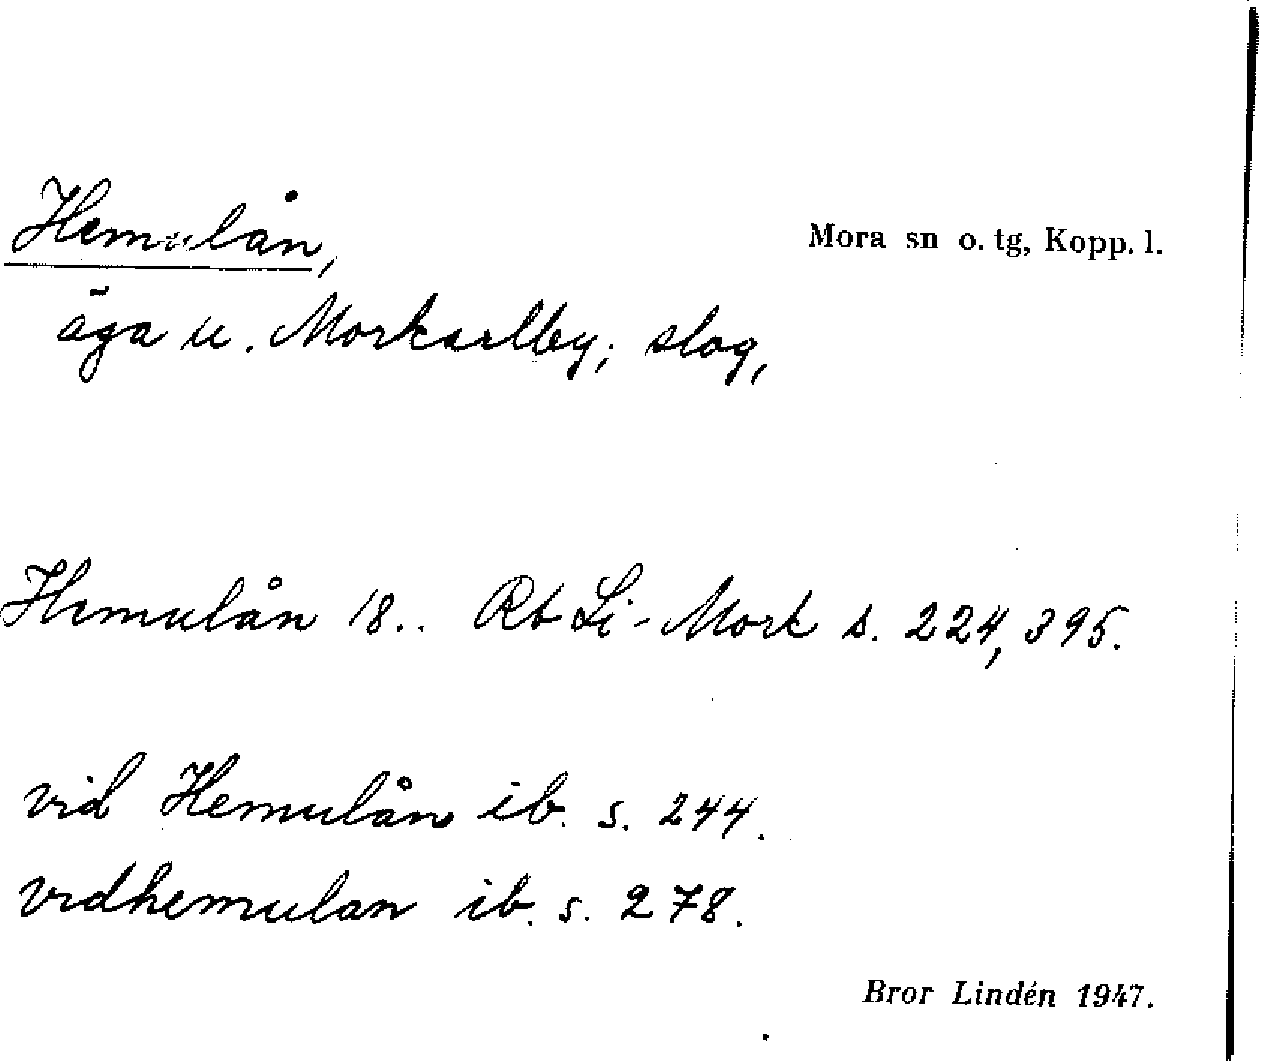 Hemulån,
Mora sn o. tg, Kopp. l.
äga u. Morkarlby; slog,
Hemulån 18.. Rb Li-Mork s. 224, 395.
vid Hemulån ib. s. 244.
vidhemulan ib. s. 278.
Bror Lindén 1947.